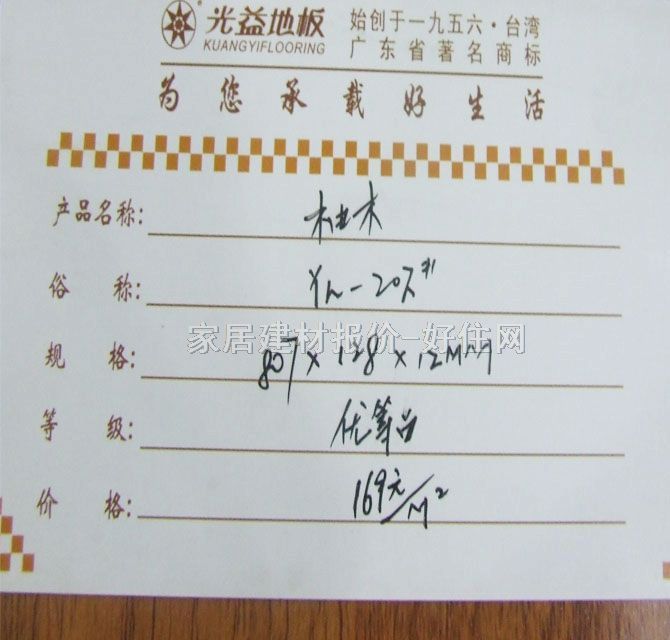 光益地板
KUANGYIFLOORING
始创于一九五六·台湾
广东省著名商标
为您承载好生活
产品名称: 柚木
俗 称:
家居建材报价-好住网
规 格: 807×128×12MM
等 级: 优等品
价 格: 169元/M²